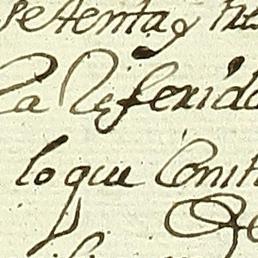 setenta y tres
La Referida
lo que Const